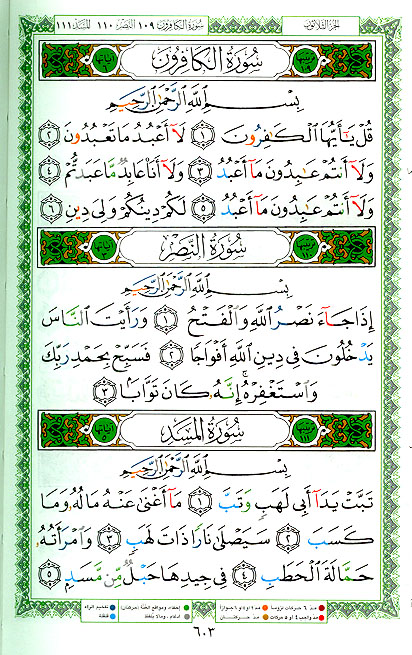 الجزء الثلاثون
سورة الكافرون ١٠٩ النصر ١١٠ المسد ١١١
سُورَةُ الْكَافِرُونَ
بِسْمِ اللَّهِ الرَّحْمَٰنِ الرَّحِيمِ
قُلْ يَٰٓأَيُّهَا ٱلْكَٰفِرُونَ ١ لَآ أَعْبُدُ مَا تَعْبُدُونَ ٢
وَلَآ أَنتُمْ عَٰبِدُونَ مَآ أَعْبُدُ ٣ وَلَآ أَنَا۠ عَابِدٌ مَّا عَبَدتُّمْ ٤
وَلَآ أَنتُمْ عَٰبِدُونَ مَآ أَعْبُدُ ٥ لَكُمْ دِينُكُمْ وَلِىَ دِينِ ٦
سُورَةُ النَّصْرِ
بِسْمِ اللَّهِ الرَّحْمَٰنِ الرَّحِيمِ
إِذَا جَآءَ نَصْرُ ٱللَّهِ وَٱلْفَتْحُ ١ وَرَأَيْتَ ٱلنَّاسَ
يَدْخُلُونَ فِى دِينِ ٱللَّهِ أَفْوَاجًا ٢ فَسَبِّحْ بِحَمْدِ رَبِّكَ
وَٱسْتَغْفِرْهُ ۚ إِنَّهُۥ كَانَ تَوَّابًۢا ٣
سُورَةُ الْمَسَدِ
بِسْمِ اللَّهِ الرَّحْمَٰنِ الرَّحِيمِ
تَبَّتْ يَدَآ أَبِى لَهَبٍ وَتَبَّ ١ مَآ أَغْنَىٰ عَنْهُ مَالُهُۥ وَمَا
كَسَبَ ٢ سَيَصْلَىٰ نَارًا ذَاتَ لَهَبٍ ٣ وَٱمْرَأَتُهُۥ
حَمَّالَةَ ٱلْحَطَبِ ٤ فِى جِيدِهَا حَبْلٌ مِّن مَّسَدٍۭ ٥
مد ٦ حركات لزوماً مد ٢ أو ٤ أو ٦ جوازاً إخفاء، ومواقع الغنّة (حركتان) تفخيم الراء
مد واجب ٤ أو ٥ حركات مد حركتان إدغام، وما لا يُلفظ قلقلة
٦٠٣